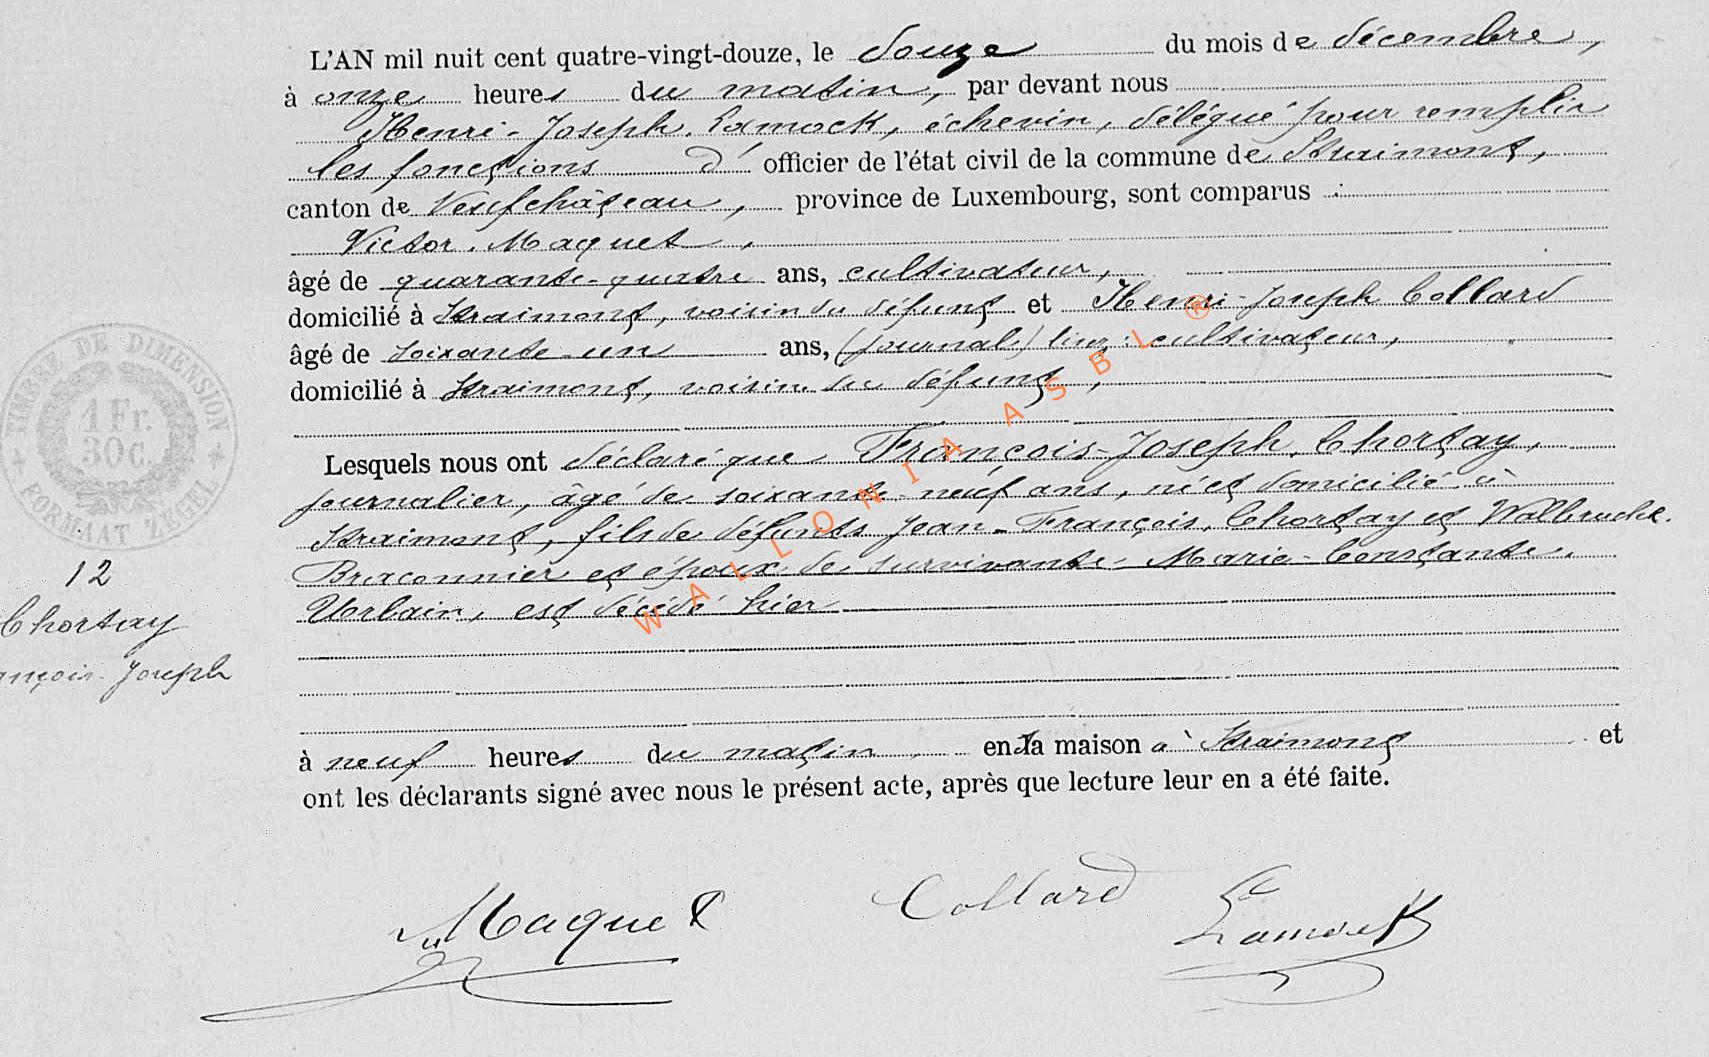 L'AN mil huit cent quatre-vingt-douze, le douze du mois de décembre,
à onze heures du matin, par devant nous
Henri-Joseph Lamock, échevin, délégué pour remplir
les fonctions d'officier de l'état civil de la commune de Straimont,
canton de Neufchâteau, province de Luxembourg, sont comparus :
Victor Maquet,
âgé de quarante-quatre ans, cultivateur,
domicilié à Straimont, voisin du défunt et Henri-Joseph Collard
âgé de soixante-un ans, (journal) lisez: cultivateur,
domicilié à Straimont, voisin du défunt,
Lesquels nous ont déclaré que François-Joseph Chortay,
journalier, âgé de soixante-neuf ans, né et domicilié à
Straimont, fils de défunts Jean-François Chortay et Walbruche
Braconnier et époux de survivante Marie-Constante
Urbain, est décédé hier
à neuf heures du matin en sa maison à Straimont et
ont les déclarants signé avec nous le présent acte, après que lecture leur en a été faite.
TIMBRE DE DIMENSION
1 Fr.
30 C.
FORMAAT ZEGEL
12
Chortay
ançois-Joseph
Maquet Collard Lamock
WALLONIA ASBL ®